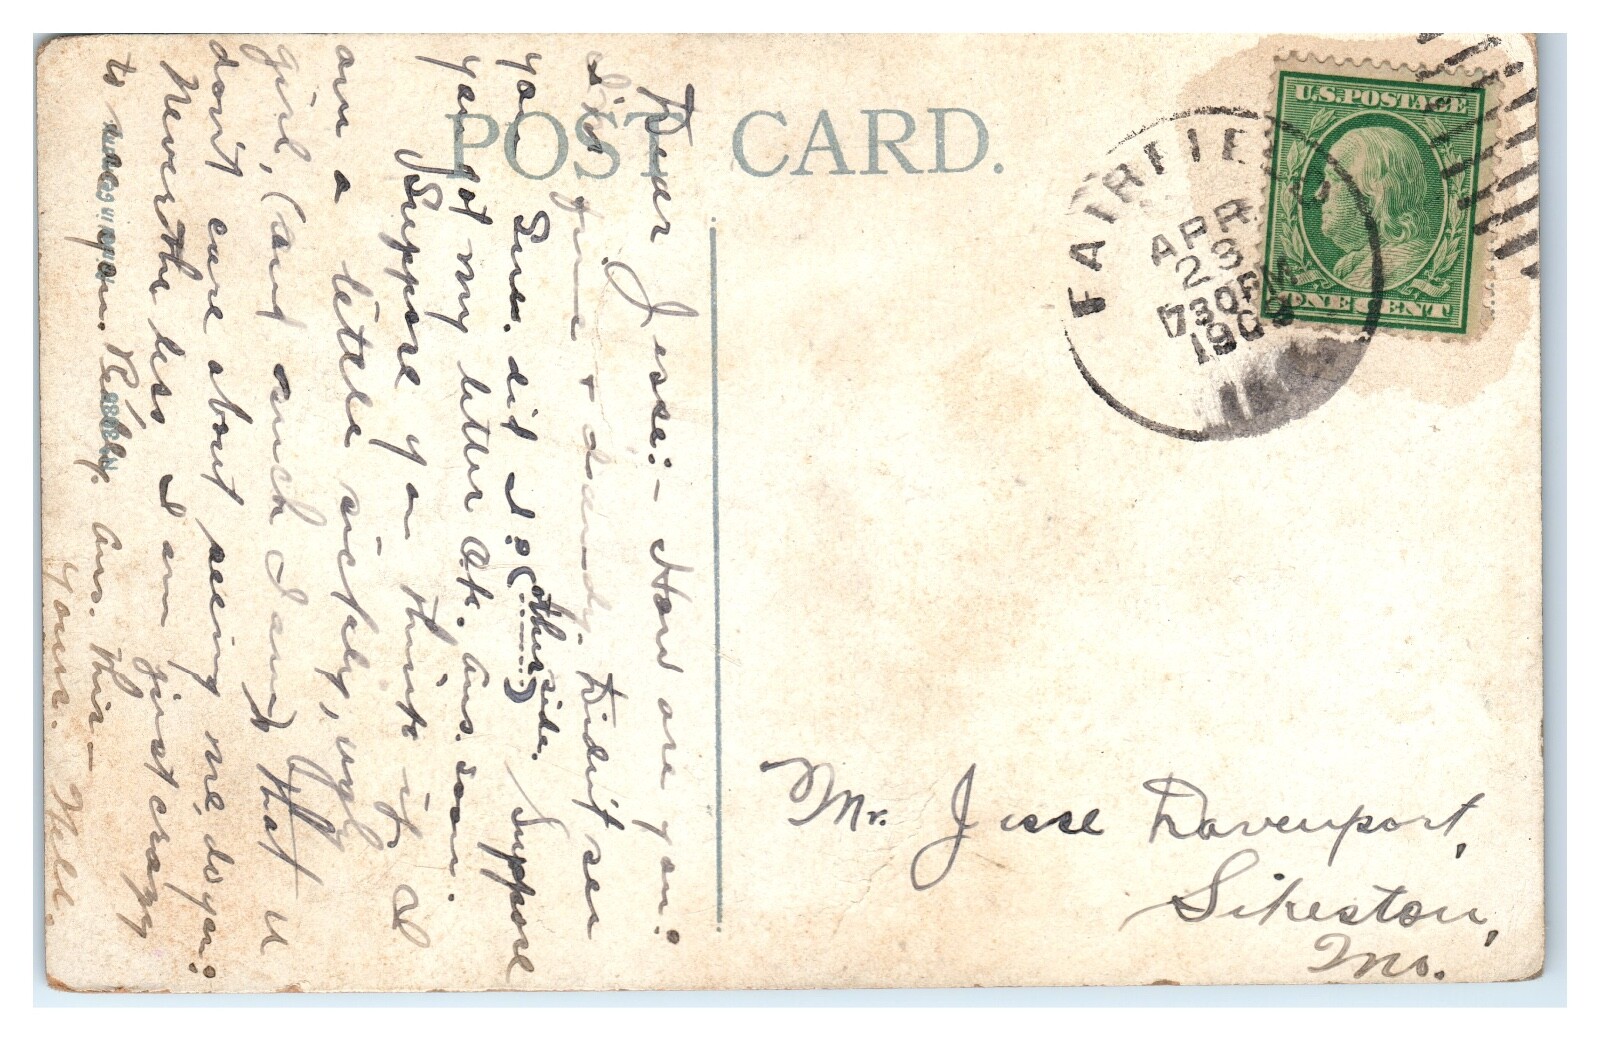 POST CARD.
U.S.POSTAGE
ONE CENT
FAIRFIELD
APR
23
730PM
1909
Dear Jesse:- How are you?
I'm fine & dandy. Didn't see
you Sun. did I? (other side.) Suppose
you got my letter O.K. Ans. soon.
Suppose you think if I
am a little sickly, ugly
girl, (and such I am) that u
don't care about seeing me, do you?
Never the less I am just crazy
to see you. Reply. Ans. this—
Yours. Nell.
Mr. Jesse Davenport,
Sikeston,
Mo.